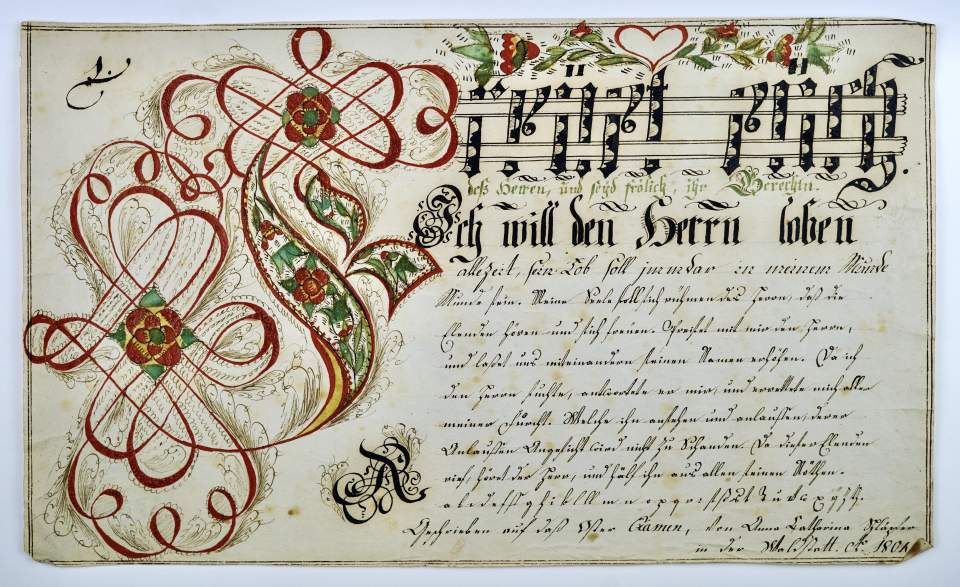 Freüet eüch.
deß Herren, und seÿd frölich, ihr Gerechtn.
Ich will den Herrn loben
allezeit, sein Lob soll jmmdar in meinem Munde
Munde sein. Meine Seele soll sich rühmen des Herrn, daß die
Elenden hören und sich freuen. Preiset mit mir den Herrn,
und laßet uns miteinandern seinen Namen erhöhen. Da ich
den Herrn suchte, antwortete er mir, und errettete mich aller
meiner Furcht. Welche ihn ansehen und anlauffen, derer
Anlauffen Angesicht wird nicht zu Schanden. Da dieser Elenden
rief, höret der Herr, und half ihm aus allen seinen Nöthen.
Geschrieben auf daß Oster Examen, von Anna Catharina Schläpfer
in der Waldstatt. Ao.